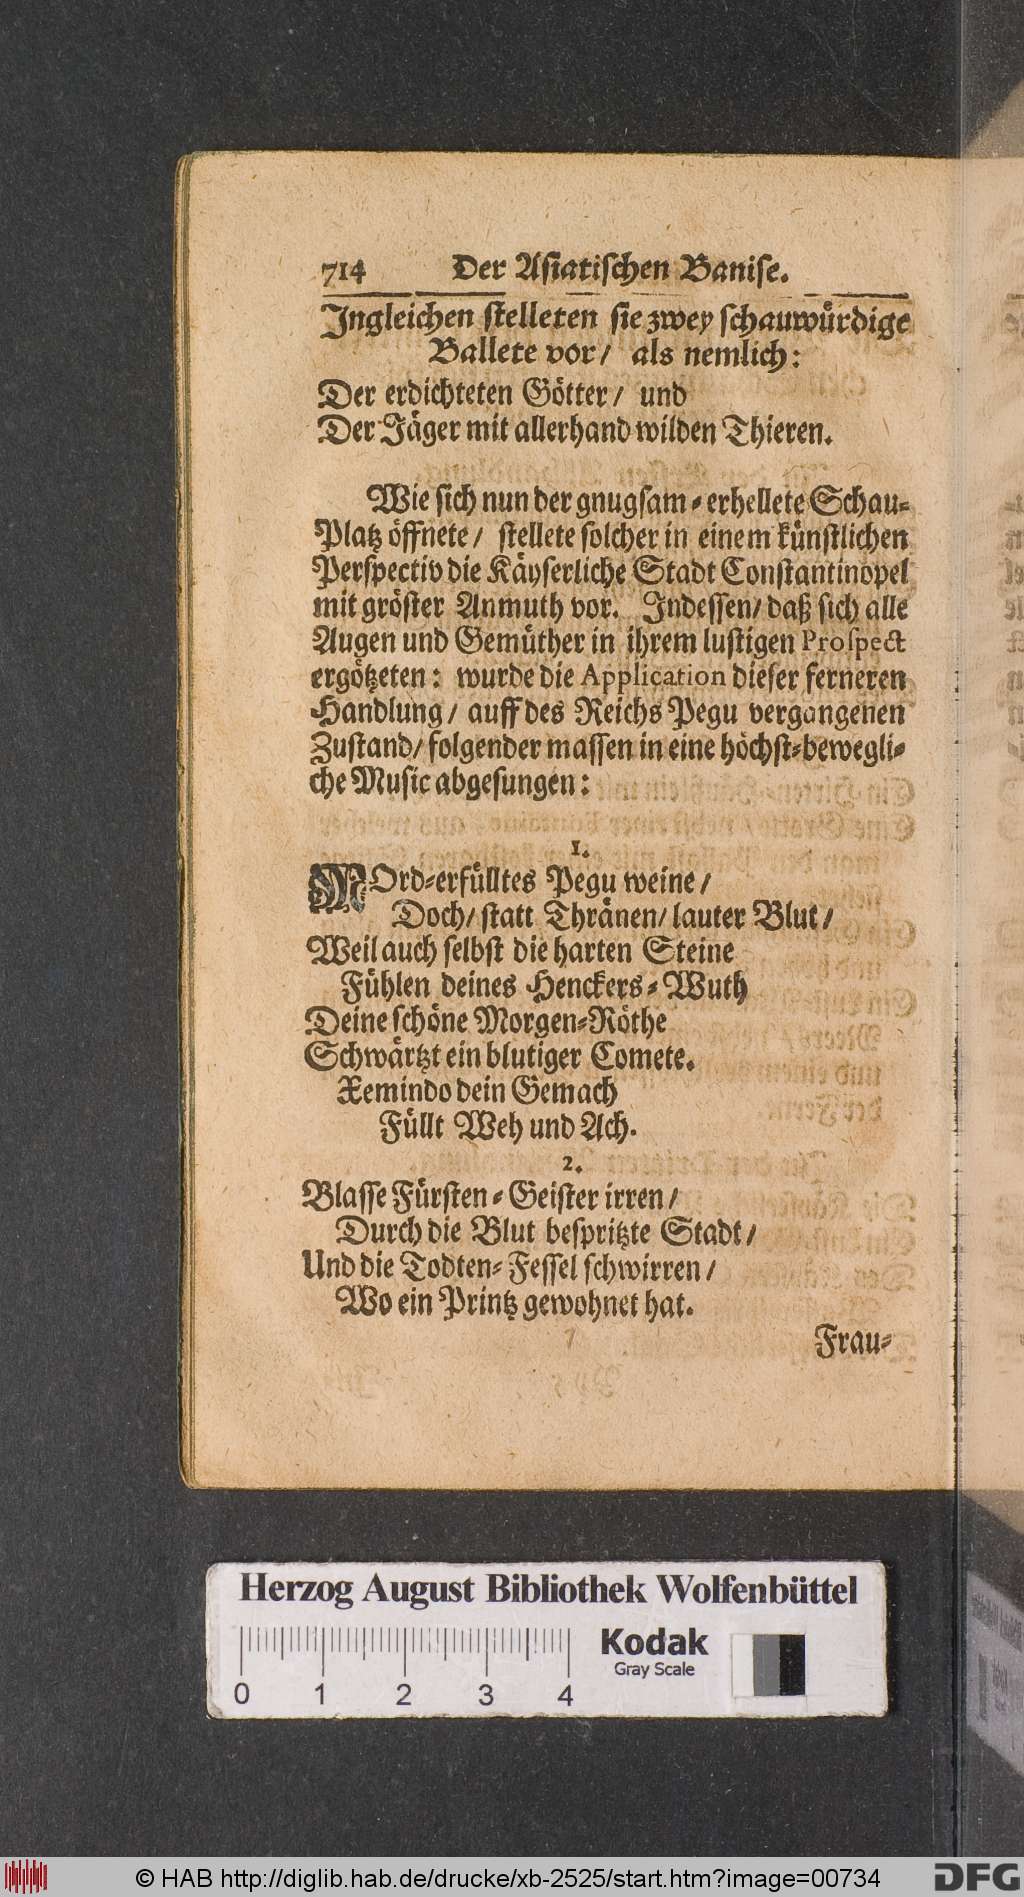 714 Der Asiatischen Banise.
Ingleichen stelleten sie zwey schauwürdige
Ballete vor/ als nemlich:
Der erdichteten Götter/ und
Der Jäger mit allerhand wilden Thieren.
Wie sich nun der gnugsam-erhellete Schau-
Platz öffnete/ stellete solcher in einem künstlichen
Perspectiv die Käyserliche Stadt Constantinopel
mit gröster Anmuth vor. Indessen/ daß sich alle
Augen und Gemüther in ihrem lustigen Prospect
ergötzeten: wurde die Application dieser ferneren
Handlung/ auff des Reichs Pegu vergangenen
Zustand/ folgender massen in eine höchst-bewegli-
che Music abgesungen:
1.
MOrd-erfülltes Pegu weine/
Doch/ statt Thränen/ lauter Blut/
Weil auch selbst die harten Steine
Fühlen deines Henckers-Wuth
Deine schöne Morgen-Röthe
Schwärtzt ein blutiger Comete.
Xemindo dein Gemach
Füllt Weh und Ach.
2.
Blasse Fürsten-Geister irren/
Durch die Blut bespritzte Stadt/
Und die Todten-Fessel schwirren/
Wo ein Printz gewohnet hat.
Frau-
Herzog August Bibliothek Wolfenbüttel
0 1 2 3 4
Kodak
Gray Scale
© HAB http://diglib.hab.de/drucke/xb-2525/start.htm?image=00734
DFG